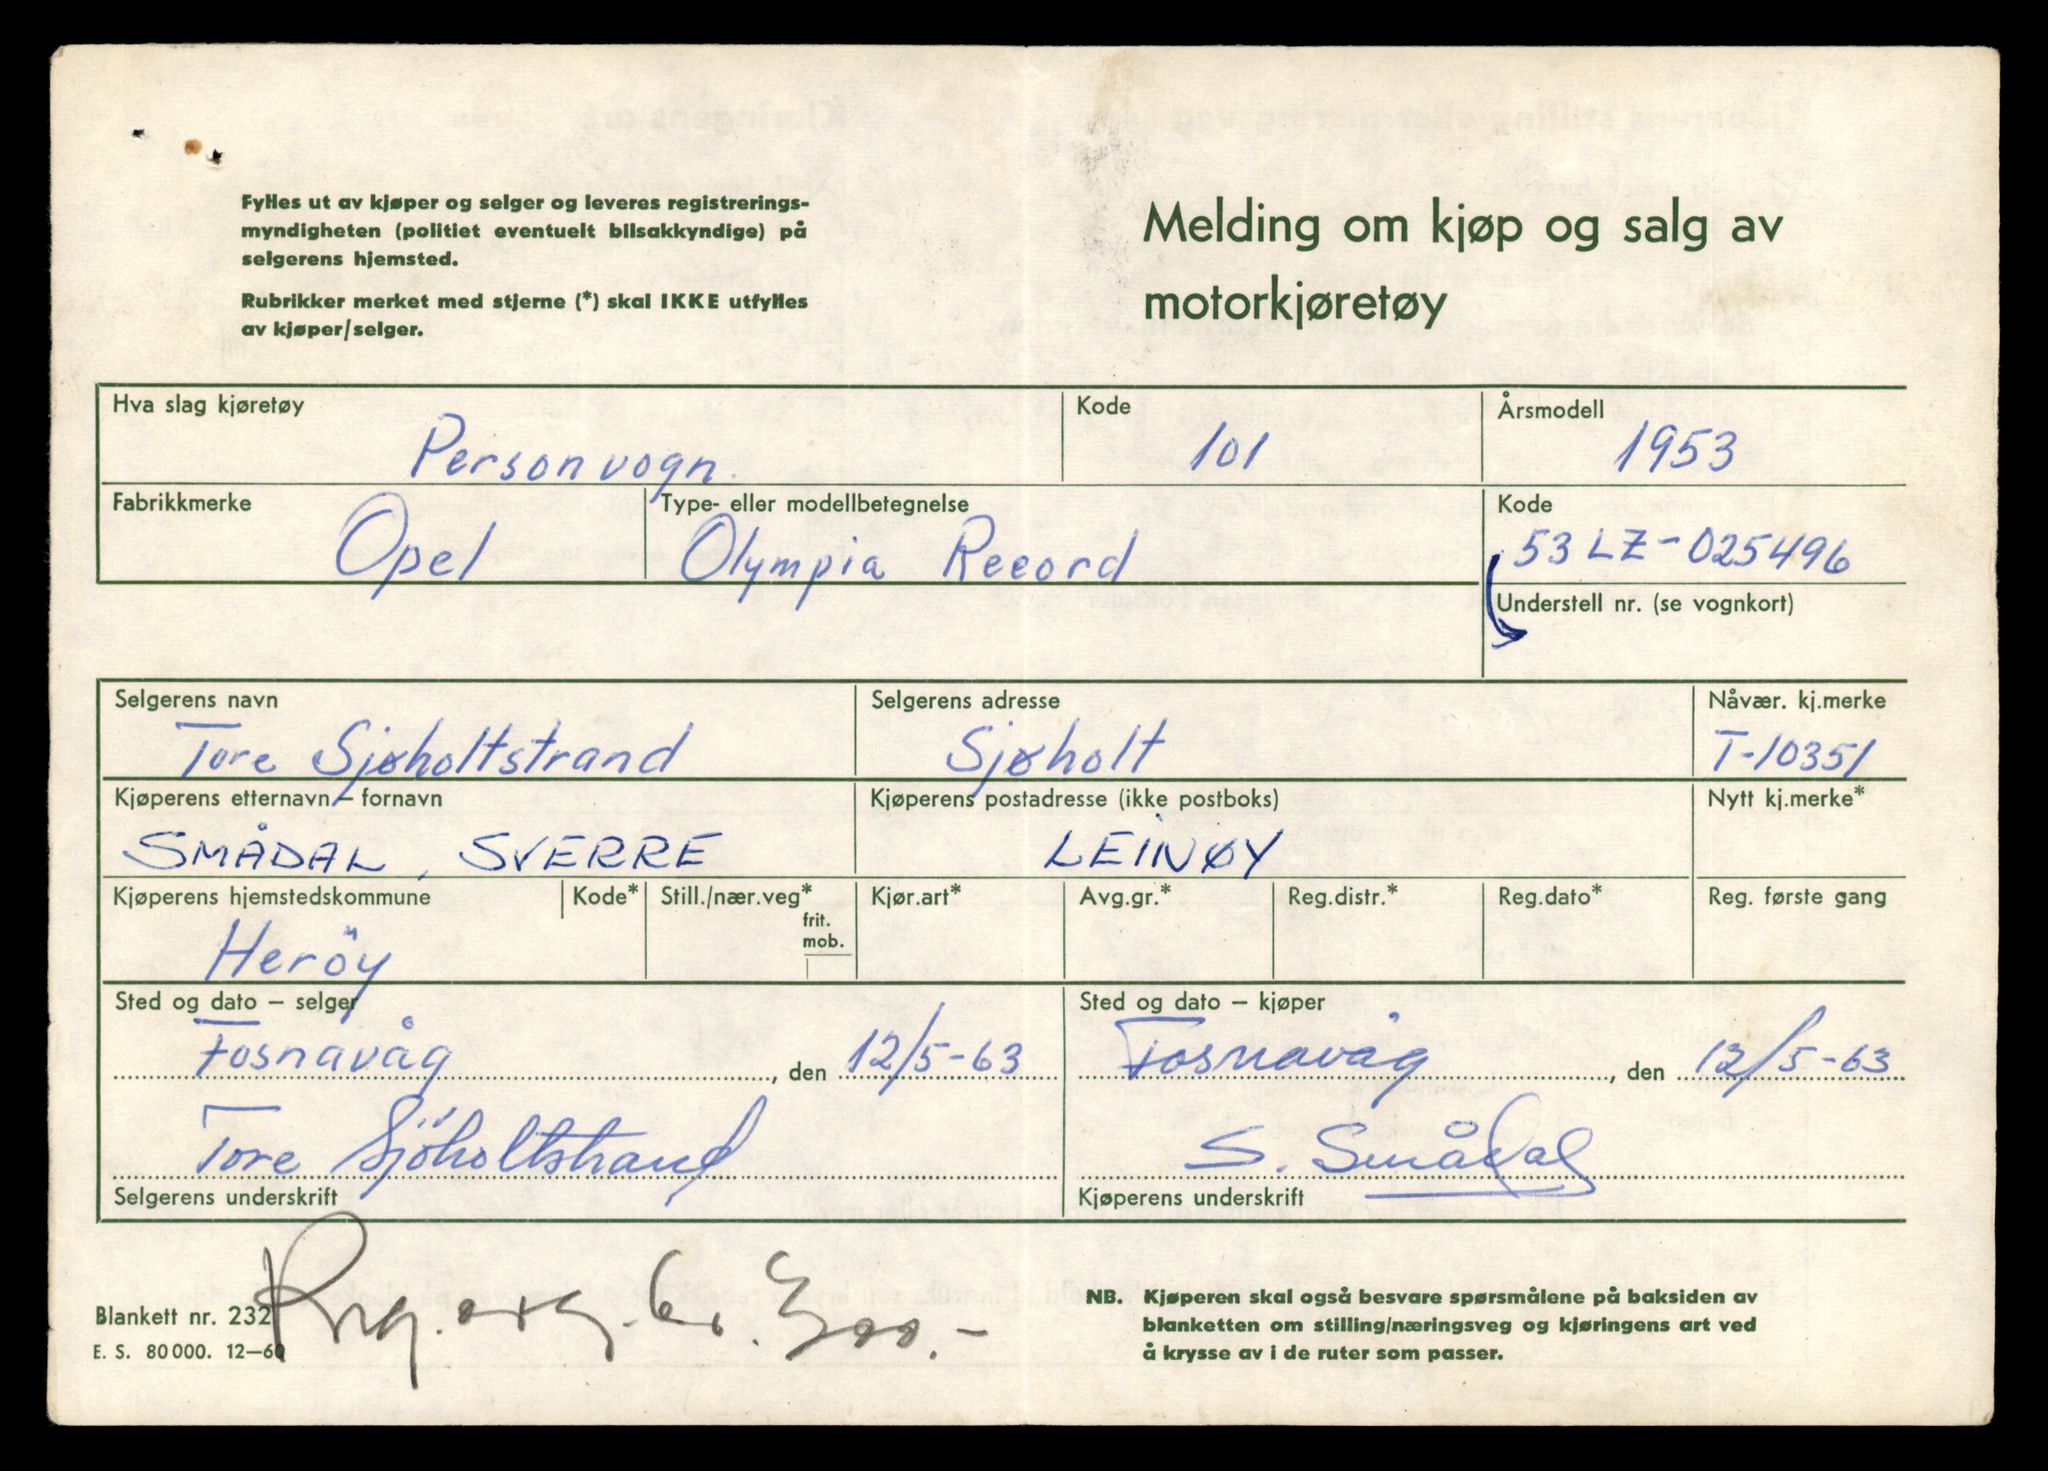 Fylles ut av kjøper og selger og leveres registrerings-
myndigheten (politiet eventuelt bilsakkyndige) på
selgerens hjemsted.
Rubrikker merket med stjerne (*) skal IKKE utfylles
av kjøper/selger.
Melding om kjøp og salg av
motorkjøretøy
Hva slag kjøretøy Kode Årsmodell
Personvogn. 101 1953
Fabrikkmerke Type- eller modellbetegnelse Kode
Opel Olympia Record 53LZ-025496
Understell nr. (se vognkort)
Selgerens navn Selgerens adresse Nåvær. kj.merke
Tore Sjøholtstrand Sjøholt T-10351
Kjøperens etternavn – fornavn Kjøperens postadresse (ikke postboks) Nytt kj.merke*
SMÅDAL, SVERRE LEINØY
Kjøperens hjemstedskommune Kode* Still./nær.veg* Kjør.art* Avg.gr.* Reg.distr.* Reg.dato* Reg. første gang
frit.
mob.
Heröy
Sted og dato – selger Sted og dato – kjøper
Fosnavåg, den 12/5-63 Fosnavåg, den 12/5-63
Tore Sjöholtstrand S. Smådal
Selgerens underskrift Kjøperens underskrift
Blankett nr. 232
E. S. 80 000. 12–60
NB. Kjøperen skal også besvare spørsmålene på baksiden av
blanketten om stilling/næringsveg og kjøringens art ved
å krysse av i de ruter som passer.